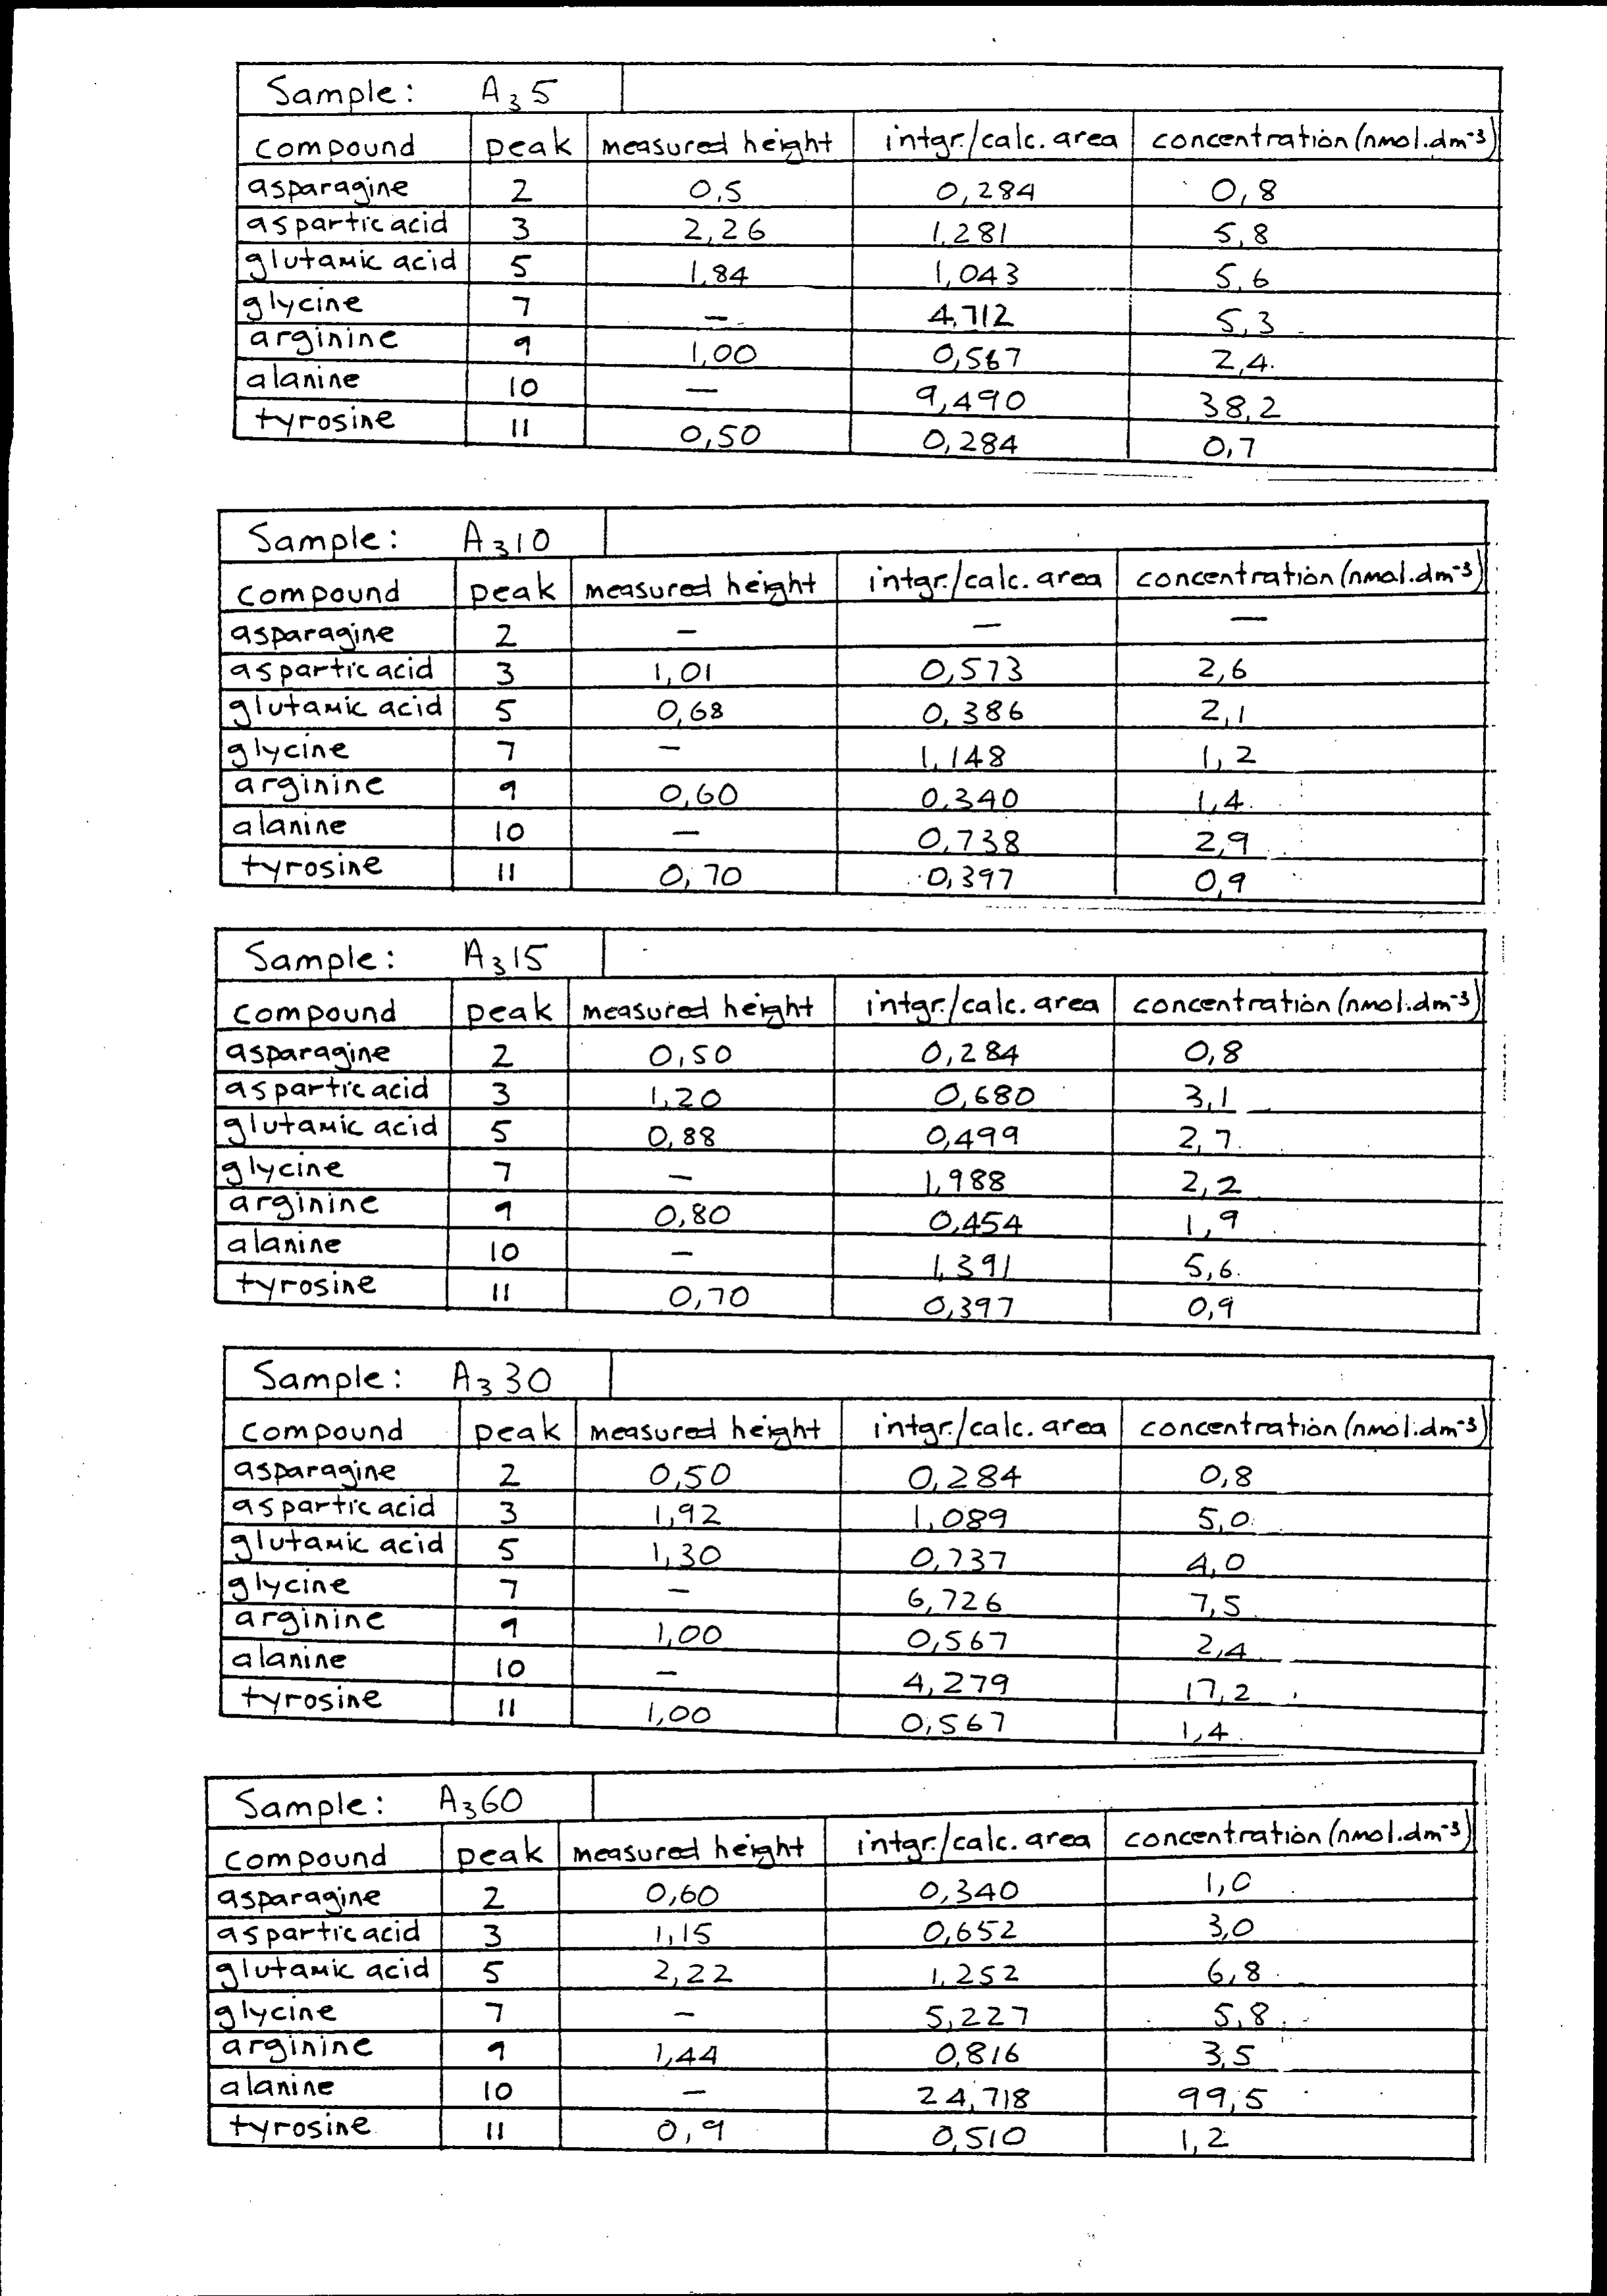 Sample: A₃5
compound peak measured height intgr./calc. area concentration (nmol.dm⁻³)
asparagine 2 0,5 0,284 0,8
aspartic acid 3 2,26 1,281 5,8
glutamic acid 5 1,84 1,043 5,6
glycine 7 – 4,712 5,3
arginine 9 1,00 0,567 2,4
alanine 10 – 9,490 38,2
tyrosine 11 0,50 0,284 0,7
Sample: A₃10
compound peak measured height intgr./calc. area concentration (nmol.dm⁻³)
asparagine 2 – – –
aspartic acid 3 1,01 0,573 2,6
glutamic acid 5 0,68 0,386 2,1
glycine 7 – 1,148 1,2
arginine 9 0,60 0,340 1,4
alanine 10 – 0,738 2,9
tyrosine 11 0,70 0,397 0,9
Sample: A₃15
compound peak measured height intgr./calc. area concentration (nmol.dm⁻³)
asparagine 2 0,50 0,284 0,8
aspartic acid 3 1,20 0,680 3,1
glutamic acid 5 0,88 0,499 2,7
glycine 7 – 1,988 2,2
arginine 9 0,80 0,454 1,9
alanine 10 – 1,391 5,6
tyrosine 11 0,70 0,397 0,9
Sample: A₃30
compound peak measured height intgr./calc. area concentration (nmol.dm⁻³)
asparagine 2 0,50 0,284 0,8
aspartic acid 3 1,92 1,089 5,0
glutamic acid 5 1,30 0,737 4,0
glycine 7 – 6,726 7,5
arginine 9 1,00 0,567 2,4
alanine 10 – 4,279 17,2
tyrosine 11 1,00 0,567 1,4
Sample: A₃60
compound peak measured height intgr./calc. area concentration (nmol.dm⁻³)
asparagine 2 0,60 0,340 1,0
aspartic acid 3 1,15 0,652 3,0
glutamic acid 5 2,22 1,252 6,8
glycine 7 – 5,227 5,8
arginine 9 1,44 0,816 3,5
alanine 10 – 24,718 99,5
tyrosine 11 0,9 0,510 1,2